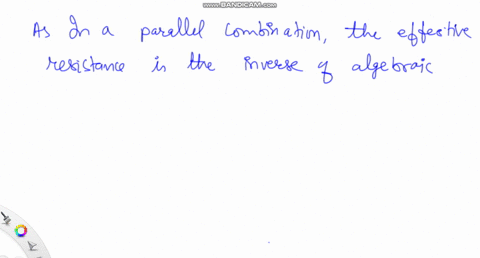 www.BANDICAM.com
As In a parallel combination, the effective
resistance is the inverse of algebraic